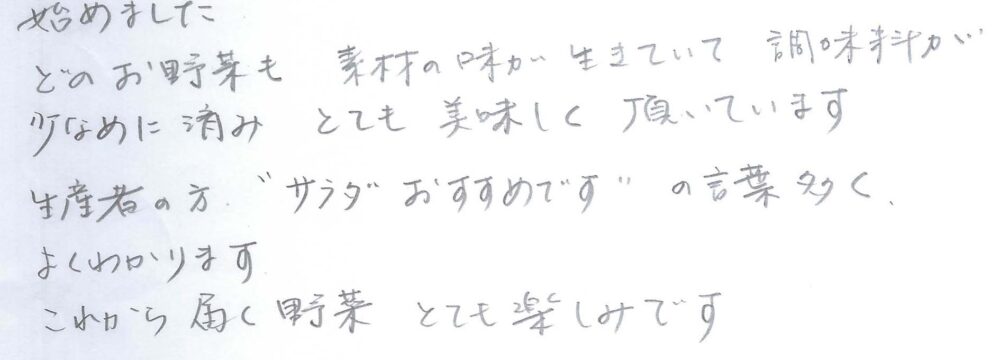 始めました
どのお野菜も 素材の味が生きていて 調味料が
少なめに済み とても美味しく頂いています
生産者の方 “サラダおすすめです” の言葉多く、
よくわかります
これから届く野菜 とても楽しみです